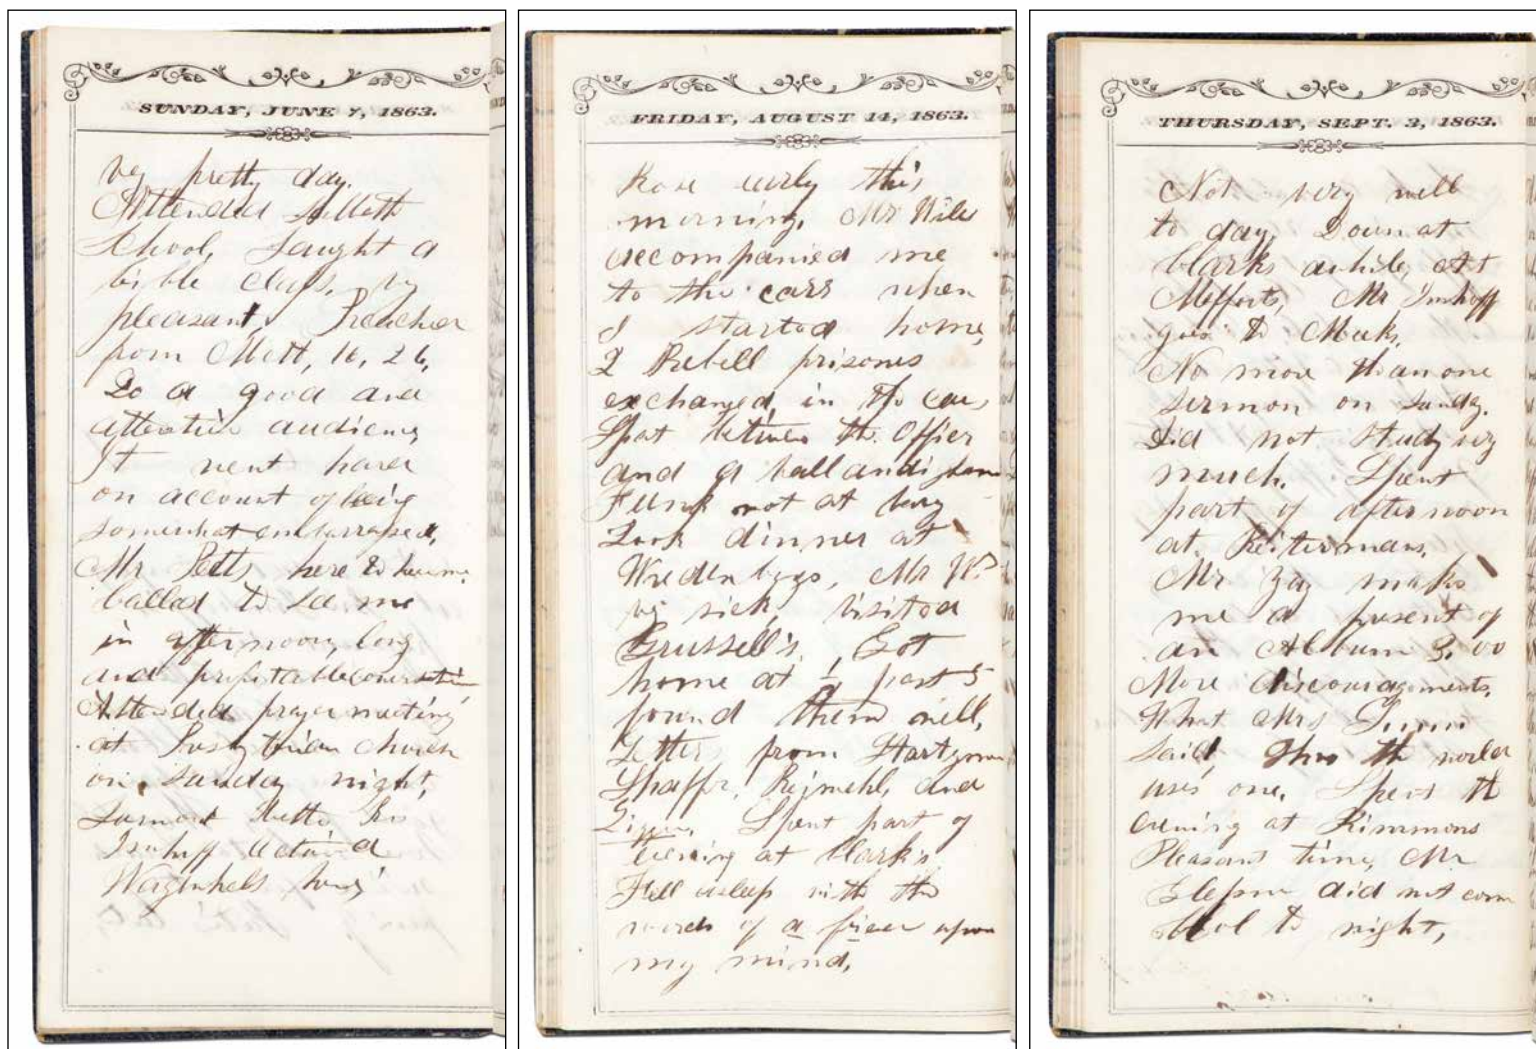 SUNDAY, JUNE 7, 1863.
vy pretty day.
Attended Sabbath
School, Taught a
bible class, vy
pleasant, Preached
from Matt, 16, 26,
To a good and
attentive audience
It went hard
on account of being
somewhat embarrassed,
Mr Petts here to hear me.
Called to see me
in afternoon, long
and profitable conversation
Attended prayer meeting
at Presbyterian Church
on Sunday night,
Imhoff
Wagenhals
FRIDAY, AUGUST 14, 1863.
Rose early this
morning, Mr Wiles
accompanied me
to the cars when
I started home,
2 Rebell prisones
exchanged in the cars
Spat between the Offier
and a vallandigham
Funk not at
Took dinner at
Mr W.
vy sick, Visited
Trussell's, Got
home at ½ past 5
found them well,
Letters from Hartzman
Shaffer, and
Spent part of
Evening at Clark's
Fell asleep with the
words of a friend upon
my mind,
THURSDAY, SEPT. 3, 1863.
Not very well
to day, Down at
Clarks awhile, At
Meffords, Mr Imhoff
goes to Meeks,
No more than one
sermon on Sunday.
Did not Study vy
much. Spent
part of afternoon
at Reitermans,
Mr makes
me a present of
an Album 3.00
More discouragements,
What Mrs
said, Thus the world
uses one, Spent the
evening at Kimmons
Pleasant time, Mr
did not com
to night,